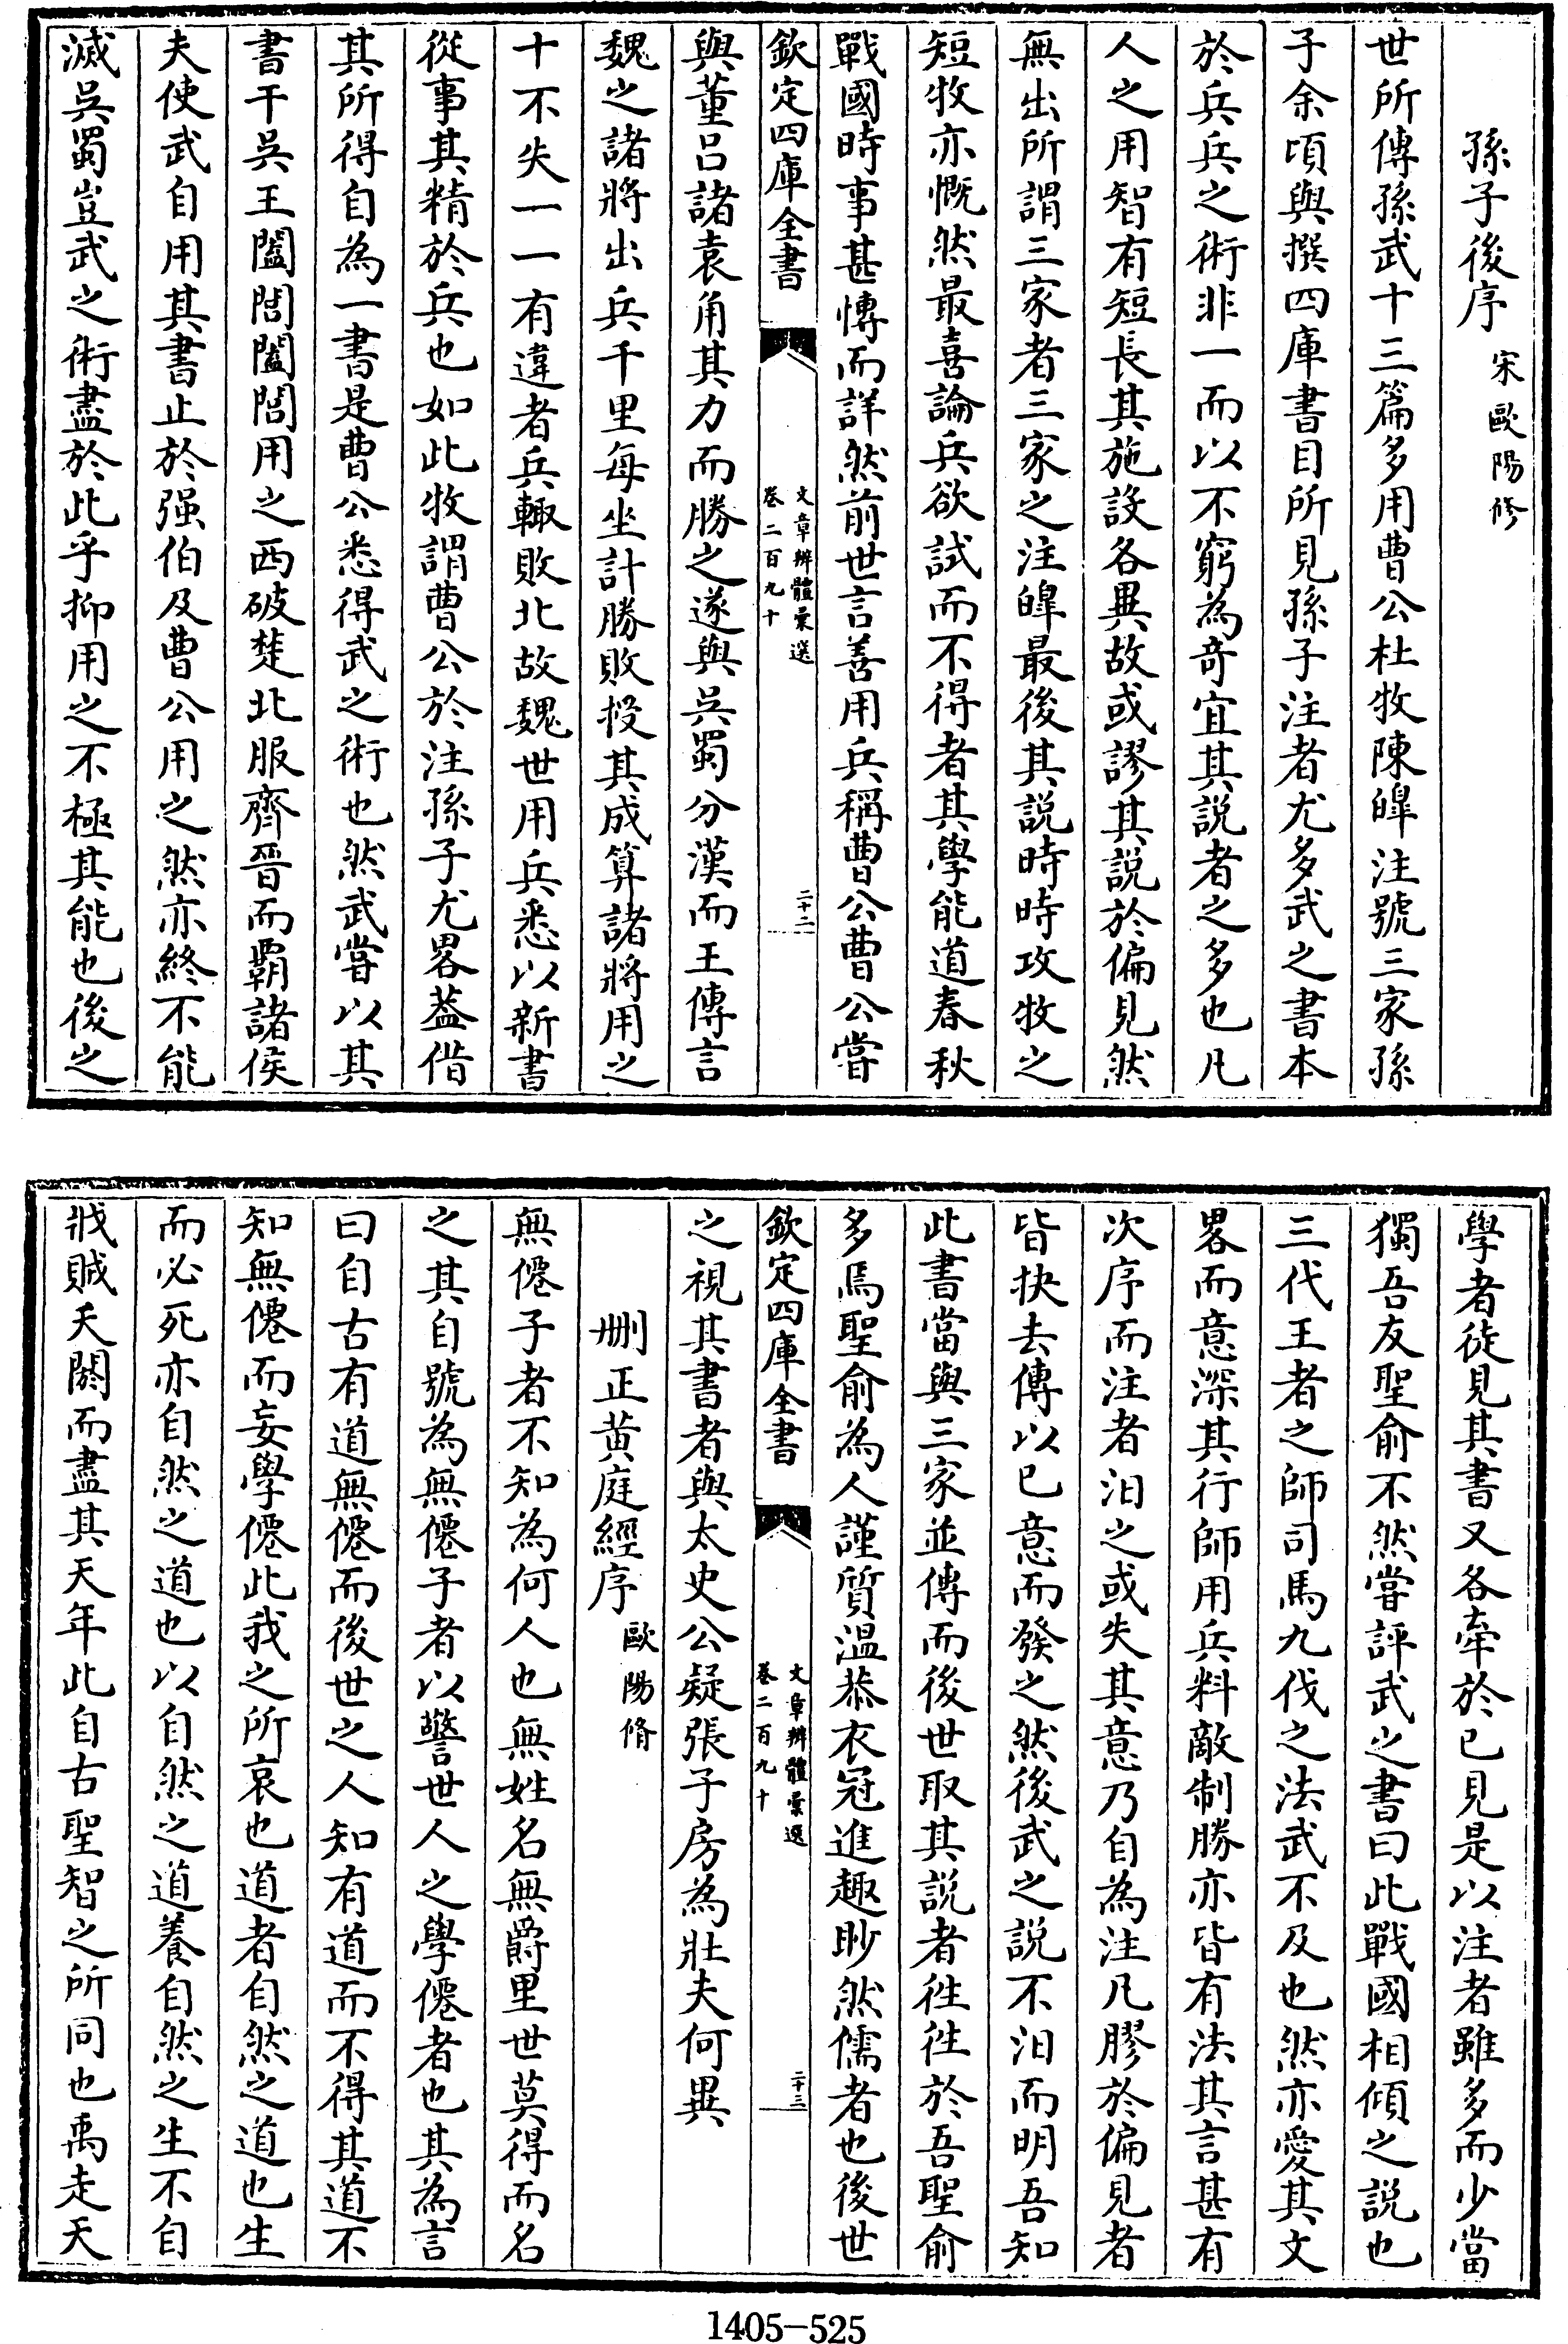 孫子後序 宋歐陽修
世所傳孫武十三篇多用曹公杜牧陳皥注號三家孫
子余頃與撰四庫書目所見孫子注者尤多武之書本
於兵兵之術非一而以不窮為竒宜其説者之多也凡
人之用智有短長其施設各異故或謬其說於偏見然
無出所謂三家者三家之注皥最後其説時時攻牧之
短牧亦慨然最喜論兵欲試而不得者其學能道春秋
戰國時事甚愽而詳然前世言善用兵稱曹公曹公嘗
欽定四庫全書
文章辨體彚選
卷二百九十
二十二
與董呂諸袁角其力而勝之遂與吳蜀分漢而王傳言
魏之諸將出兵千里每坐計勝敗授其成算諸將用之
十不失一一有違者兵輙敗北故魏世用兵悉以新書
從事其精於兵也如此牧謂曹公於注孫子尤畧葢借
其所得自為一書是曹公悉得武之術也然武嘗以其
書干吳王闔閭闔閭用之西破楚北服齊晉而霸諸侯
夫使武自用其書止於强伯及曹公用之然亦終不能
滅吳蜀豈武之術盡於此乎抑用之不極其能也後之
學者徒見其書又各牽於已見是以注者雖多而少當
獨吾友聖俞不然嘗評武之書曰此戰國相傾之説也
三代王者之師司馬九伐之法武不及也然亦愛其文
畧而意深其行師用兵料敵制勝亦皆有法其言甚有
次序而注者汩之或失其意乃自為注凡膠於偏見者
皆抉去傳以已意而發之然後武之説不汩而明吾知
此書當與三家並傳而後世取其説者徃徃於吾聖俞
多焉聖俞為人謹質温恭衣冠進趣眇然儒者也後世
欽定四庫全書
文章辨體彚選
卷二百九十
二十三
之視其書者與太史公疑張子房為壯夫何異
刪正黄庭經序 歐陽脩
無僊子者不知為何人也無姓名無爵里世莫得而名
之其自號為無僊子者以警世人之學僊者也其為言
曰自古有道無僊而後世之人知有道而不得其道不
知無僊而妄學僊此我之所哀也道者自然之道也生
而必死亦自然之道也以自然之道養自然之生不自
戕賊夭閼而盡其天年此自古聖智之所同也禹走天
1405-525